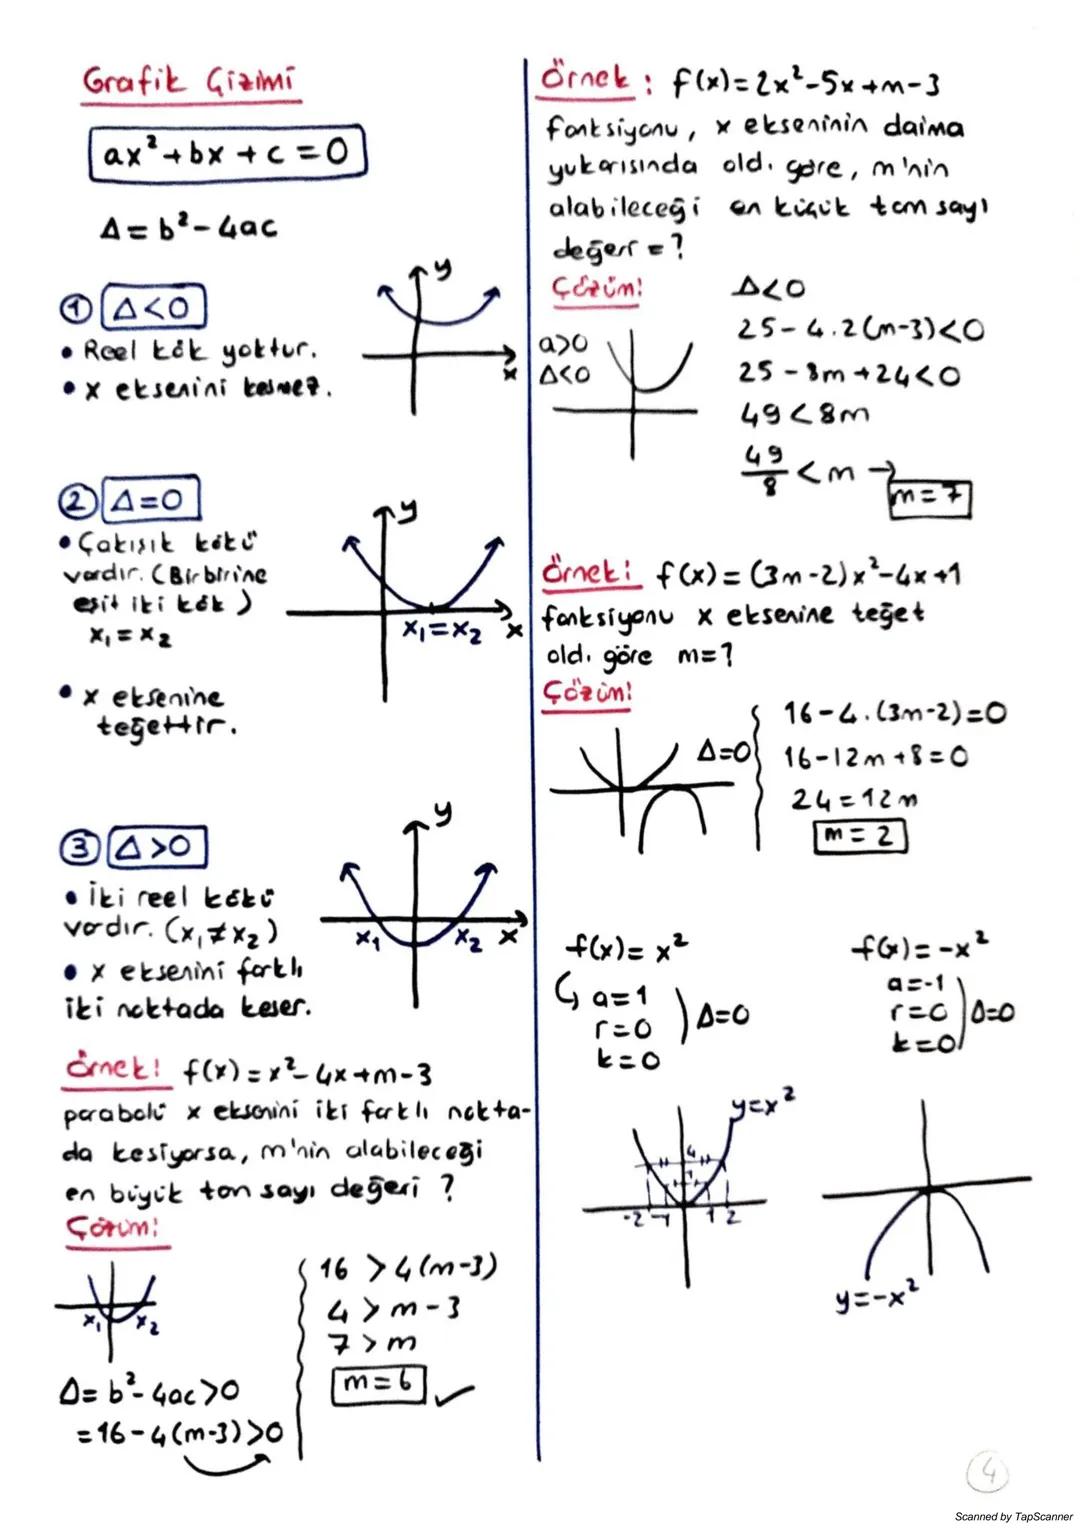 Grafik Çizimi
ax²+bx+c=0
Δ=b²-4ac
① Δ<0
• Reel kök yoktur.
• x eksenini kesmez.
y
x
② Δ=0
• Çakışık kökü
vardır. (Birbirine
eşit iki kök)
x₁=x₂
• x eksenine
teğettir.
y
x₁=x₂ x
③ Δ>0
• İki reel kökü
vardır. (x₁≠x₂)
• x eksenini farklı
iki noktada keser.
y
x₁ x₂ x
Örnek: f(x)=x²-4x+m-3
parabolü x eksenini iki farklı nokta-
da kesiyorsa, m'nin alabileceği
en büyük tam sayı değeri ?
Çözüm:
x₁ x₂
Δ=b²-4ac>0
=16-4(m-3)>0
16 >4(m-3)
4>m-3
7>m
m=6
Örnek: f(x)=2x²-5x+m-3
fonksiyonu, x ekseninin daima
yukarısında old. göre, m'nin
alabileceği en küçük tam sayı
değeri =?
Çözüm:
a>0
Δ<0
Δ<0
25-4.2(m-3)<0
25-8m+24<0
49<8m
49/8 <m →
m=7
Örnek: f(x)=(3m-2)x²-4x+1
fonksiyonu x eksenine teğet
old. göre m=?
Çözüm:
Δ=0
16-4.(3m-2)=0
16-12m+8=0
24=12m
m=2
f(x)=x²
a=1
r=0
k=0
Δ=0
y=x²
4
-2 -1 1 2
f(x)=-x²
a=-1
r=0
k=0
Δ=0
y=-x²
4
Scanned by TapScanner